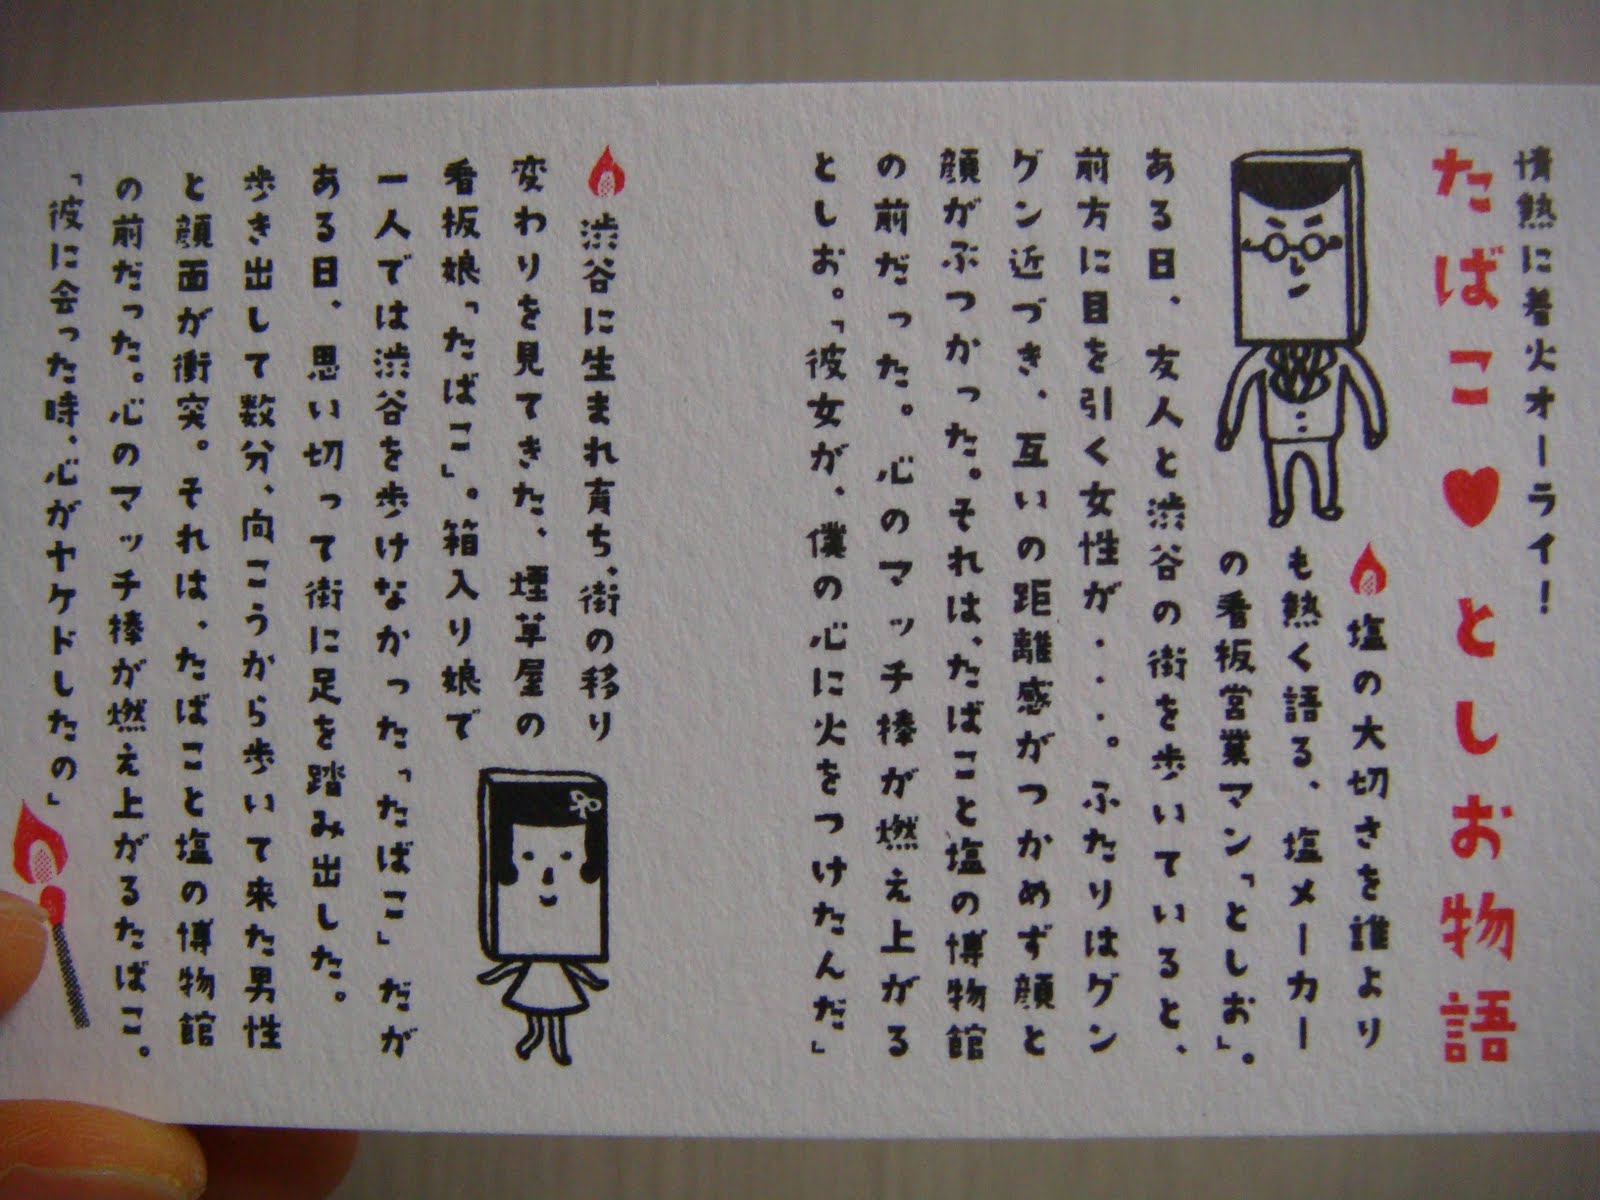 情熱に着火オーライ!
たばこ♥としお物語
塩の大切さを誰より
も熱く語る、塩メーカー
の看板営業マン「としお」。
ある日、友人と渋谷の街を歩いていると、
前方に目を引く女性が・・・。ふたりはグン
グン近づき、互いの距離感がつかめず顔と
顔がぶつかった。それは、たばこと塩の博物館
の前だった。心のマッチ棒が燃え上がる
としお。「彼女が、僕の心に火をつけたんだ」
渋谷に生まれ育ち、街の移り
変わりを見てきた、煙草屋の
看板娘「たばこ」。箱入り娘で
一人では渋谷を歩けなかった「たばこ」だが
ある日、思い切って街に足を踏み出した。
歩き出して数分、向こうから歩いて来た男性
と顔面が衝突。それは、たばこと塩の博物館
の前だった。心のマッチ棒が燃え上がるたばこ。
「彼に会った時、心がヤケドしたの」